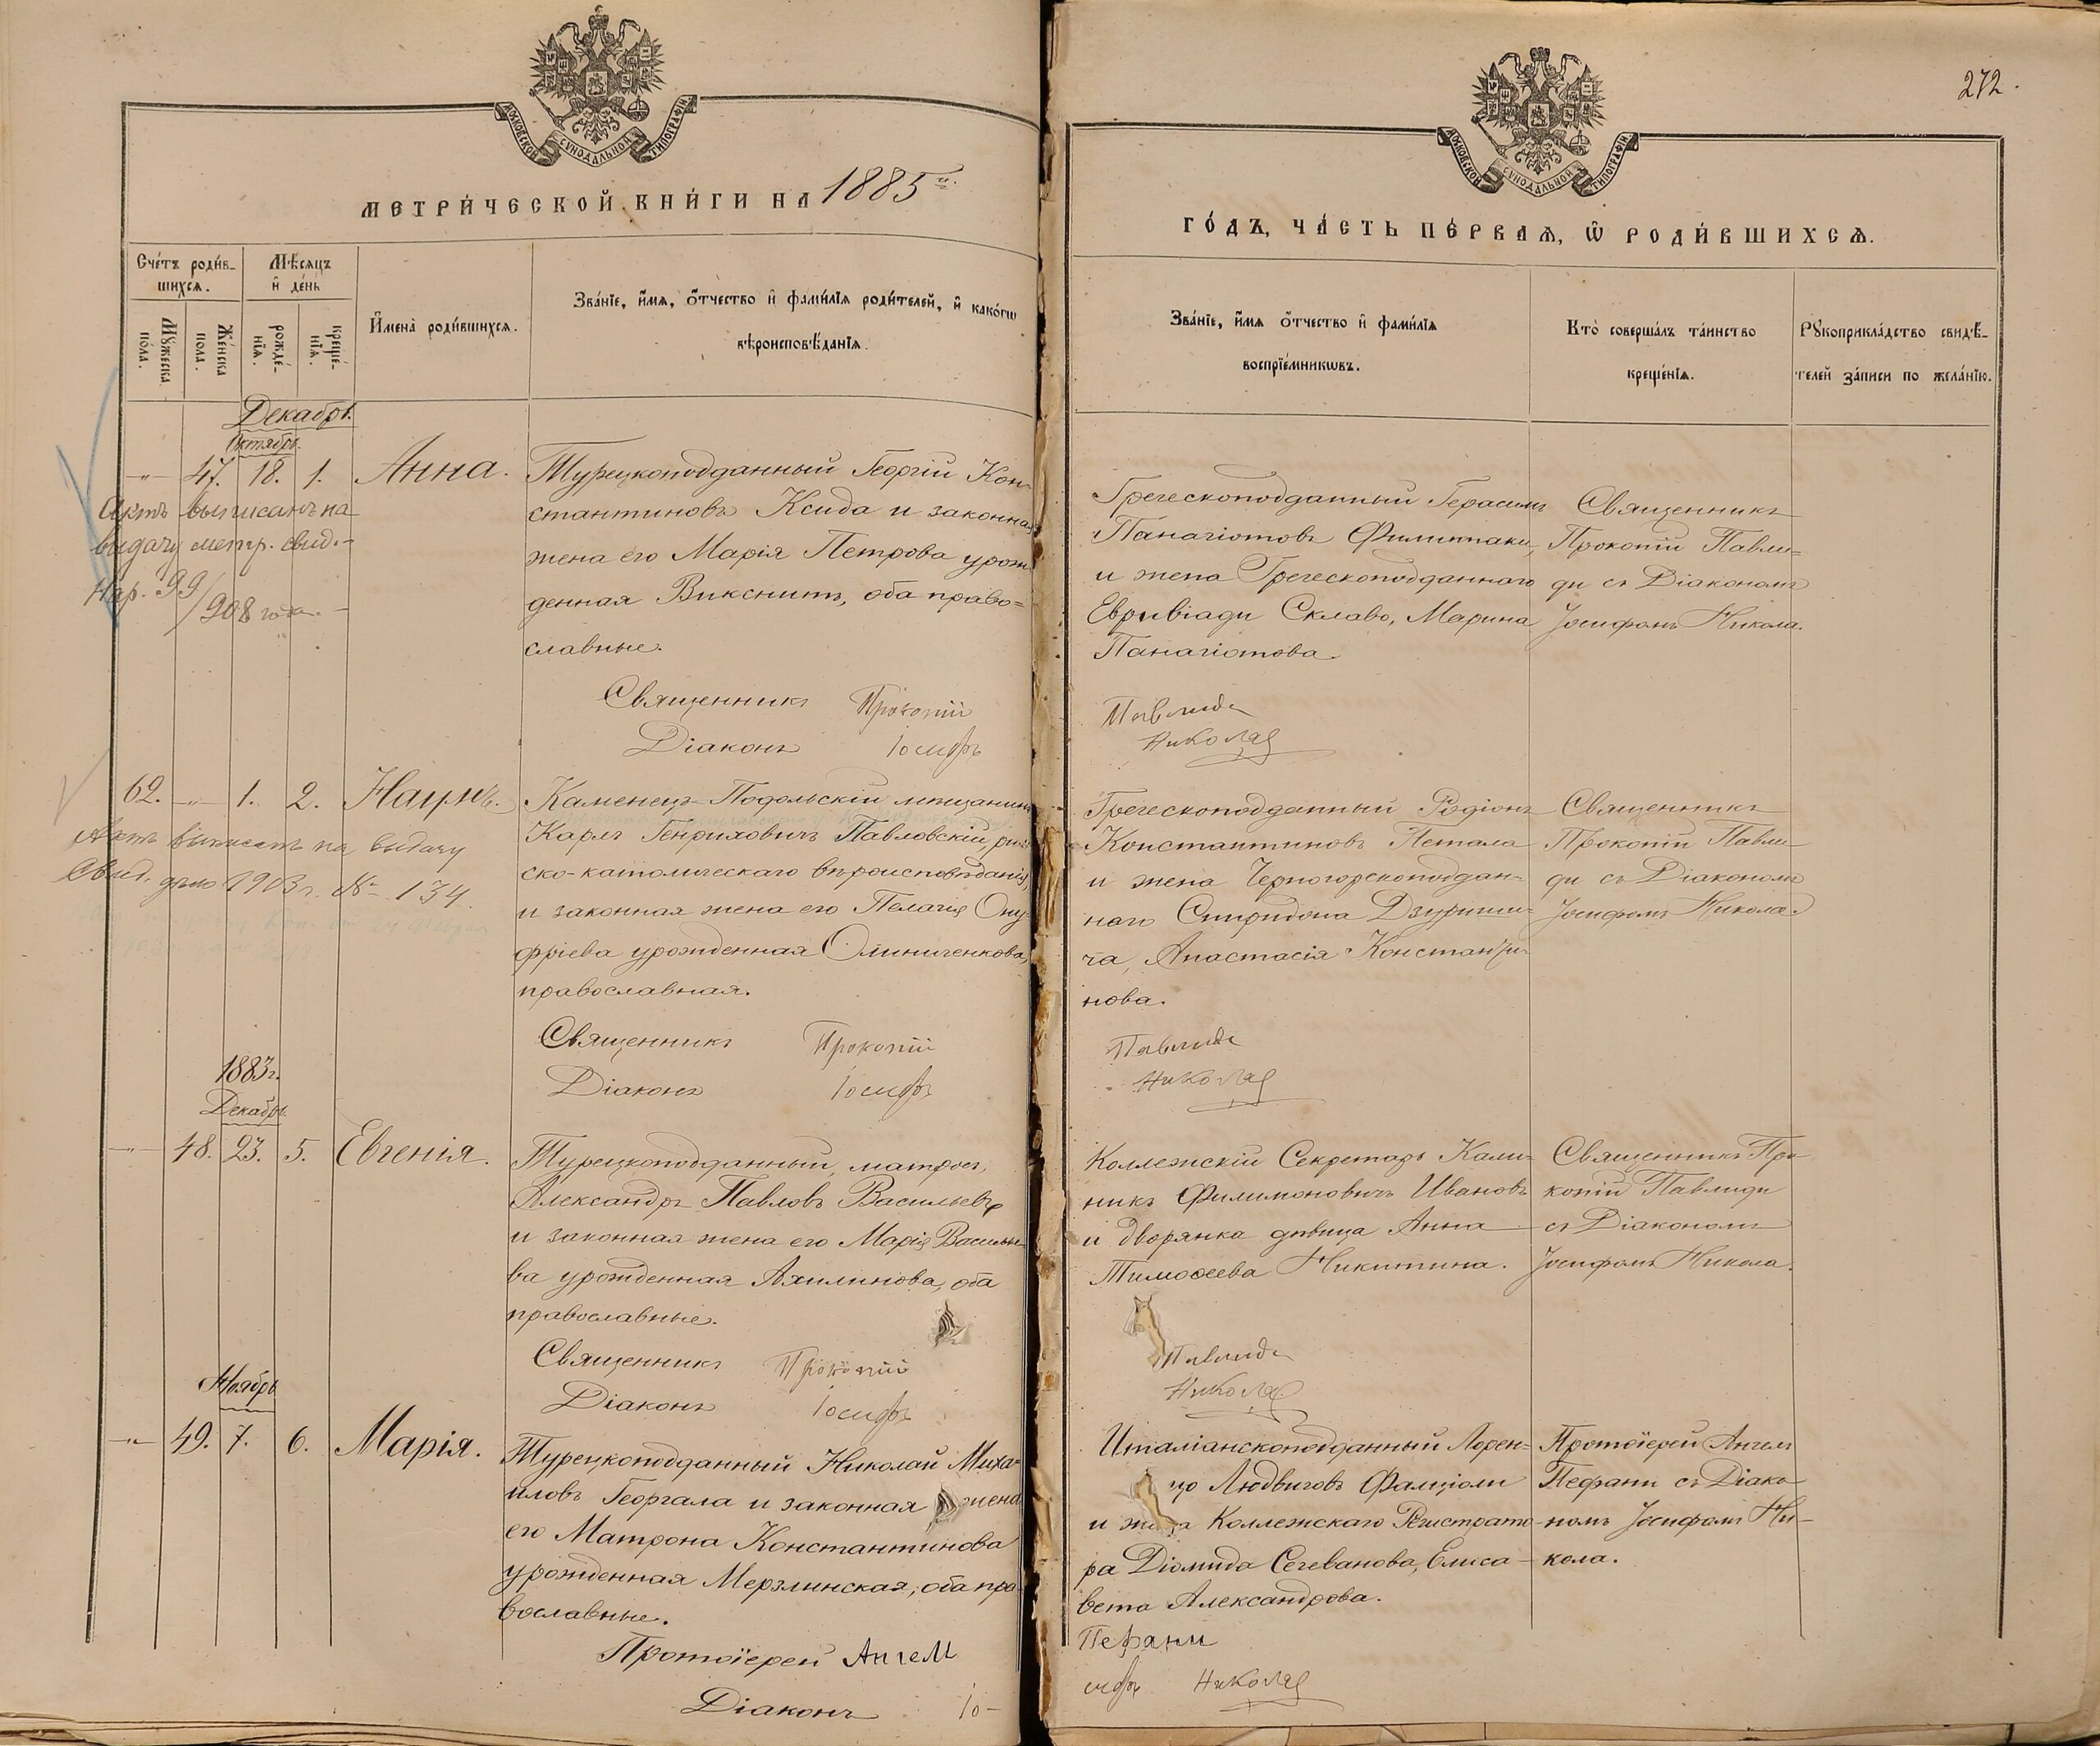 МОСКОВСКОЙ СУНОДАЛЬНОЙ ТИПОГРАФІИ
МЕТРИ́ЧЕСКОЙ КНИ́ГИ НА 1885й.
Сче́тъ роди́в-
шихсѧ.
Мѣ́сѧцъ
и҆ де́нь
Мꙋ́жеска пола.
Же́нска пола.
рожде́-нїѧ.
креще́-нїѧ.
И҆мена̀ роди́вшихсѧ.
Зва́нїе, и҆́мѧ, ѻ҆́тчество и҆ фами́лїѧ роди́телей, и҆ како́гѡ
вѣроисповѣ́данїѧ.
Декабрь.
Октябрь.
-"- 47. 18. 1. Анна.
Турецкоподданный Георгій Кон-
стантиновъ Ксида и законная
жена его Марія Петрова урож
денная Викснитъ, оба право=
славные.
Актъ выписанъ на
выдачу метр. свид.-
Нар. 99/908 года.-
Священникъ Прокопій
Діаконъ Іосифъ
62. -"- 1. 2. Наумъ.
Каменецъ-Подольскій мѣщанинъ
Карлъ Генриховичъ Павловскій, рим
ско-католическаго вѣроисповѣданія,
и законная жена его Пелагія Ону-
фріева урожденная Олиниченкова,
православная.
Актъ выписанъ на выдачу
Свид. дѣло 1903 г. № 134.
Священникъ Прокопій
Діаконъ Іосифъ
1883 г.
Декабрь.
-"- 48. 23. 5. Евгенія.
Турецкоподданный, матросъ,
Александръ Павловъ Васильевъ
и законная жена его Марія Василье-
ва урожденная Ахилинова, оба
православные.
Священникъ Прокопій
Діаконъ Іосифъ
Ноябрь
-"- 49. 7. 6. Марія.
Турецкоподданный Николай Миха=
иловъ Георгала и законная жена
его Матрона Константинова
урожденная Мерзлинская, оба пра
вославные.
Протоіерей Ангелъ
Діаконъ Іо-
272.
МОСКОВСКОЙ СУНОДАЛЬНОЙ ТИПОГРАФІИ
ГО́ДЪ, ЧА́СТЬ ПЕ́РВАѦ, Ѽ РОДИ́ВШИХСѦ.
Зва́нїе, и҆́мѧ ѻ҆́тчество и҆ фами́лїѧ
воспрїе́мникѡвъ.
Кто̀ соверша́лъ та́инство
креще́нїѧ.
Рꙋкоприкла́дство свидѣ́-
телей за́писи по жела́нїю.
Греческоподданный Герасимъ
Панагіотовъ Филиппаки,
и жена Греческоподданнаго
Евривіади Склаво, Марина
Панагіотова.
Священникъ
Прокопій Павли=
ди съ Діакономъ
Іосифомъ Никола.
Павлиди
Николая
Греческоподданный Родіонъ
Константиновъ Петала
и жена Черногорскоподдан=
наго Спиридона Дзуриши=
ча, Анастасія Константи-
нова.
Священникъ
Прокопій Павли-
ди съ Діакономъ
Іосифомъ Никола.
Павлиди
Николая
Коллежскій Секретарь Кали-
никъ Филимоновичъ Ивановъ
и дворянка дѣвица Анна
Тимоѳеева Никитина.
Священникъ Про
копій Павлиди
съ Діакономъ
Іосифомъ Никола.
Павлиди
Николая
Италіанскоподданный Лорен=
цо Людвиговъ Фалціоли
и жена Коллежскаго Регистрато-
ра Діомида Сечеванова, Елиса-
вета Александрова.
Протоіерей Ангелъ
Пефани съ Діако-
номъ Іосифомъ Ни-
кола.
Пефани
сифъ Николая